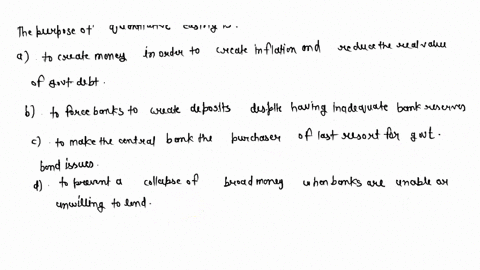 The purpose of quantitative easing is.
a) to create money in order to create inflation and reduce the real value
of govt debt.
b) to force banks to create deposits despite having inadequate bank reserves
c) to make the central bank the purchaser of last resort for govt.
bond issues.
d) to prevent a collapse of broad money when banks are unable or
unwilling to lend.